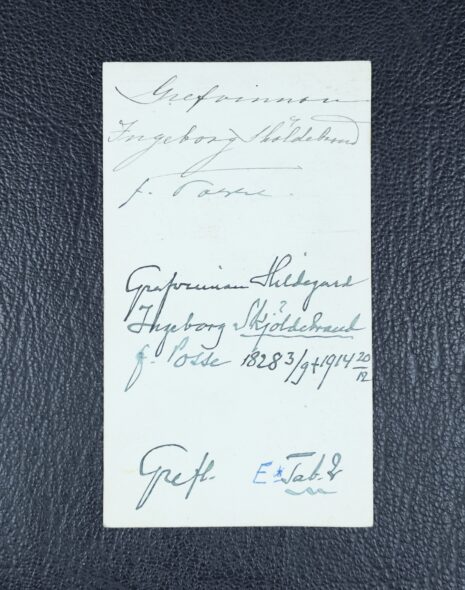 Grefvinnan
Ingeborg Sköldebrand
f. Posse.
Grefvinnan Hildegard
?
Ingeborg Skjöldebrand
f. Posse 1828 3/9 † 1914 20/12
Grefl. E* Tab. 2